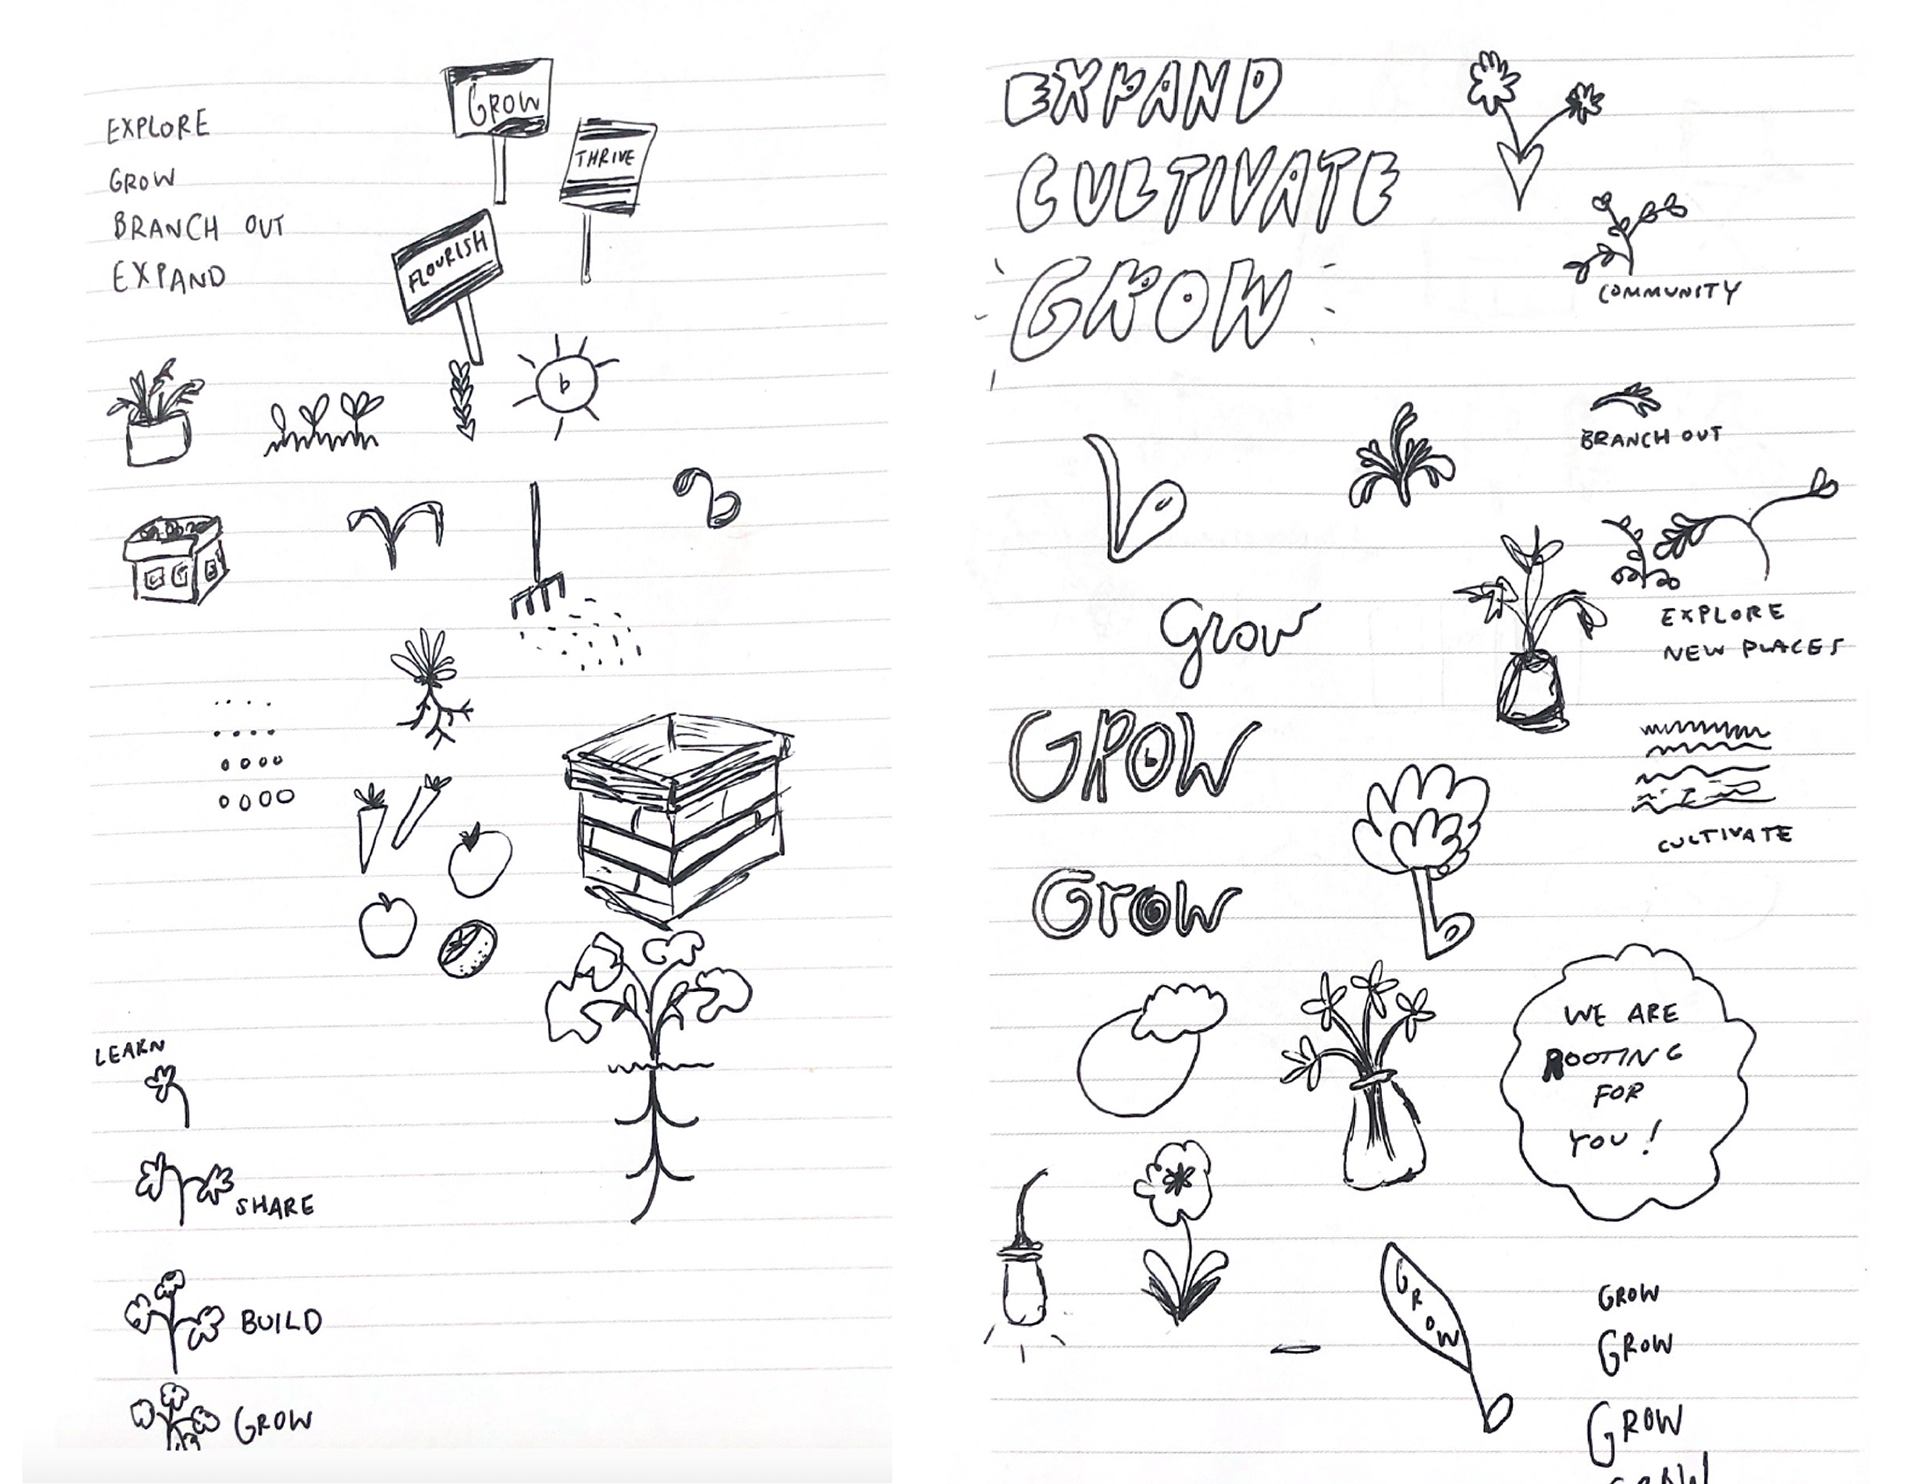 EXPLORE
GROW
BRANCH OUT
EXPAND
GROW
THRIVE
FLOURISH
b
LEARN
SHARE
BUILD
GROW
EXPAND
CULTIVATE
GROW
COMMUNITY
BRANCH OUT
b
grow
EXPLORE
NEW PLACES
GROW
b
CULTIVATE
Grow
b
WE ARE
ROOTING
FOR
YOU!
GROW
GROW
GROW
GROW
GROW